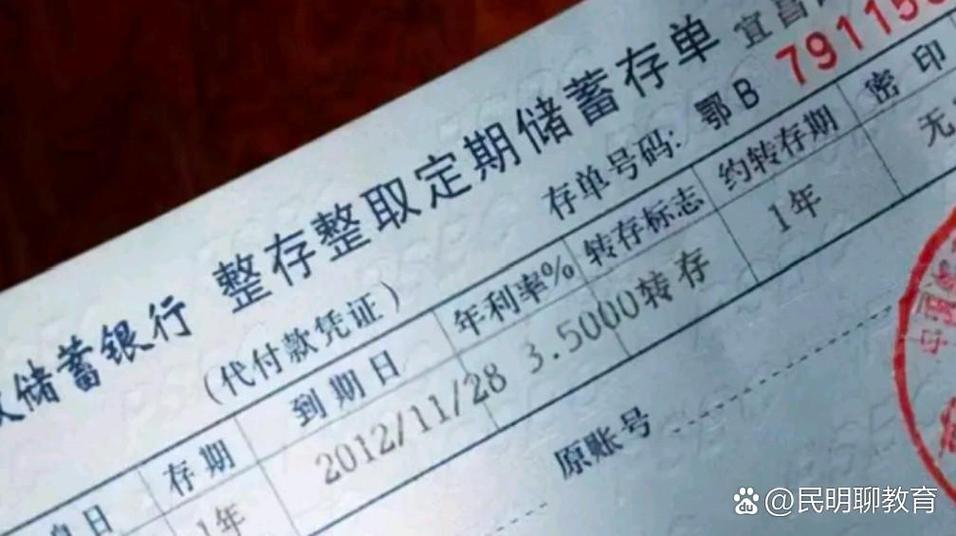 储蓄银行 整存整取定期储蓄存单 宜昌
(代付款凭证) 存单号码: 鄂B 79115
息日 存期 到期日 年利率% 转存标志 约转存期 密印
1年 2012/11/28 3.5000 转存 1年 无
原账号
@民明聊教育